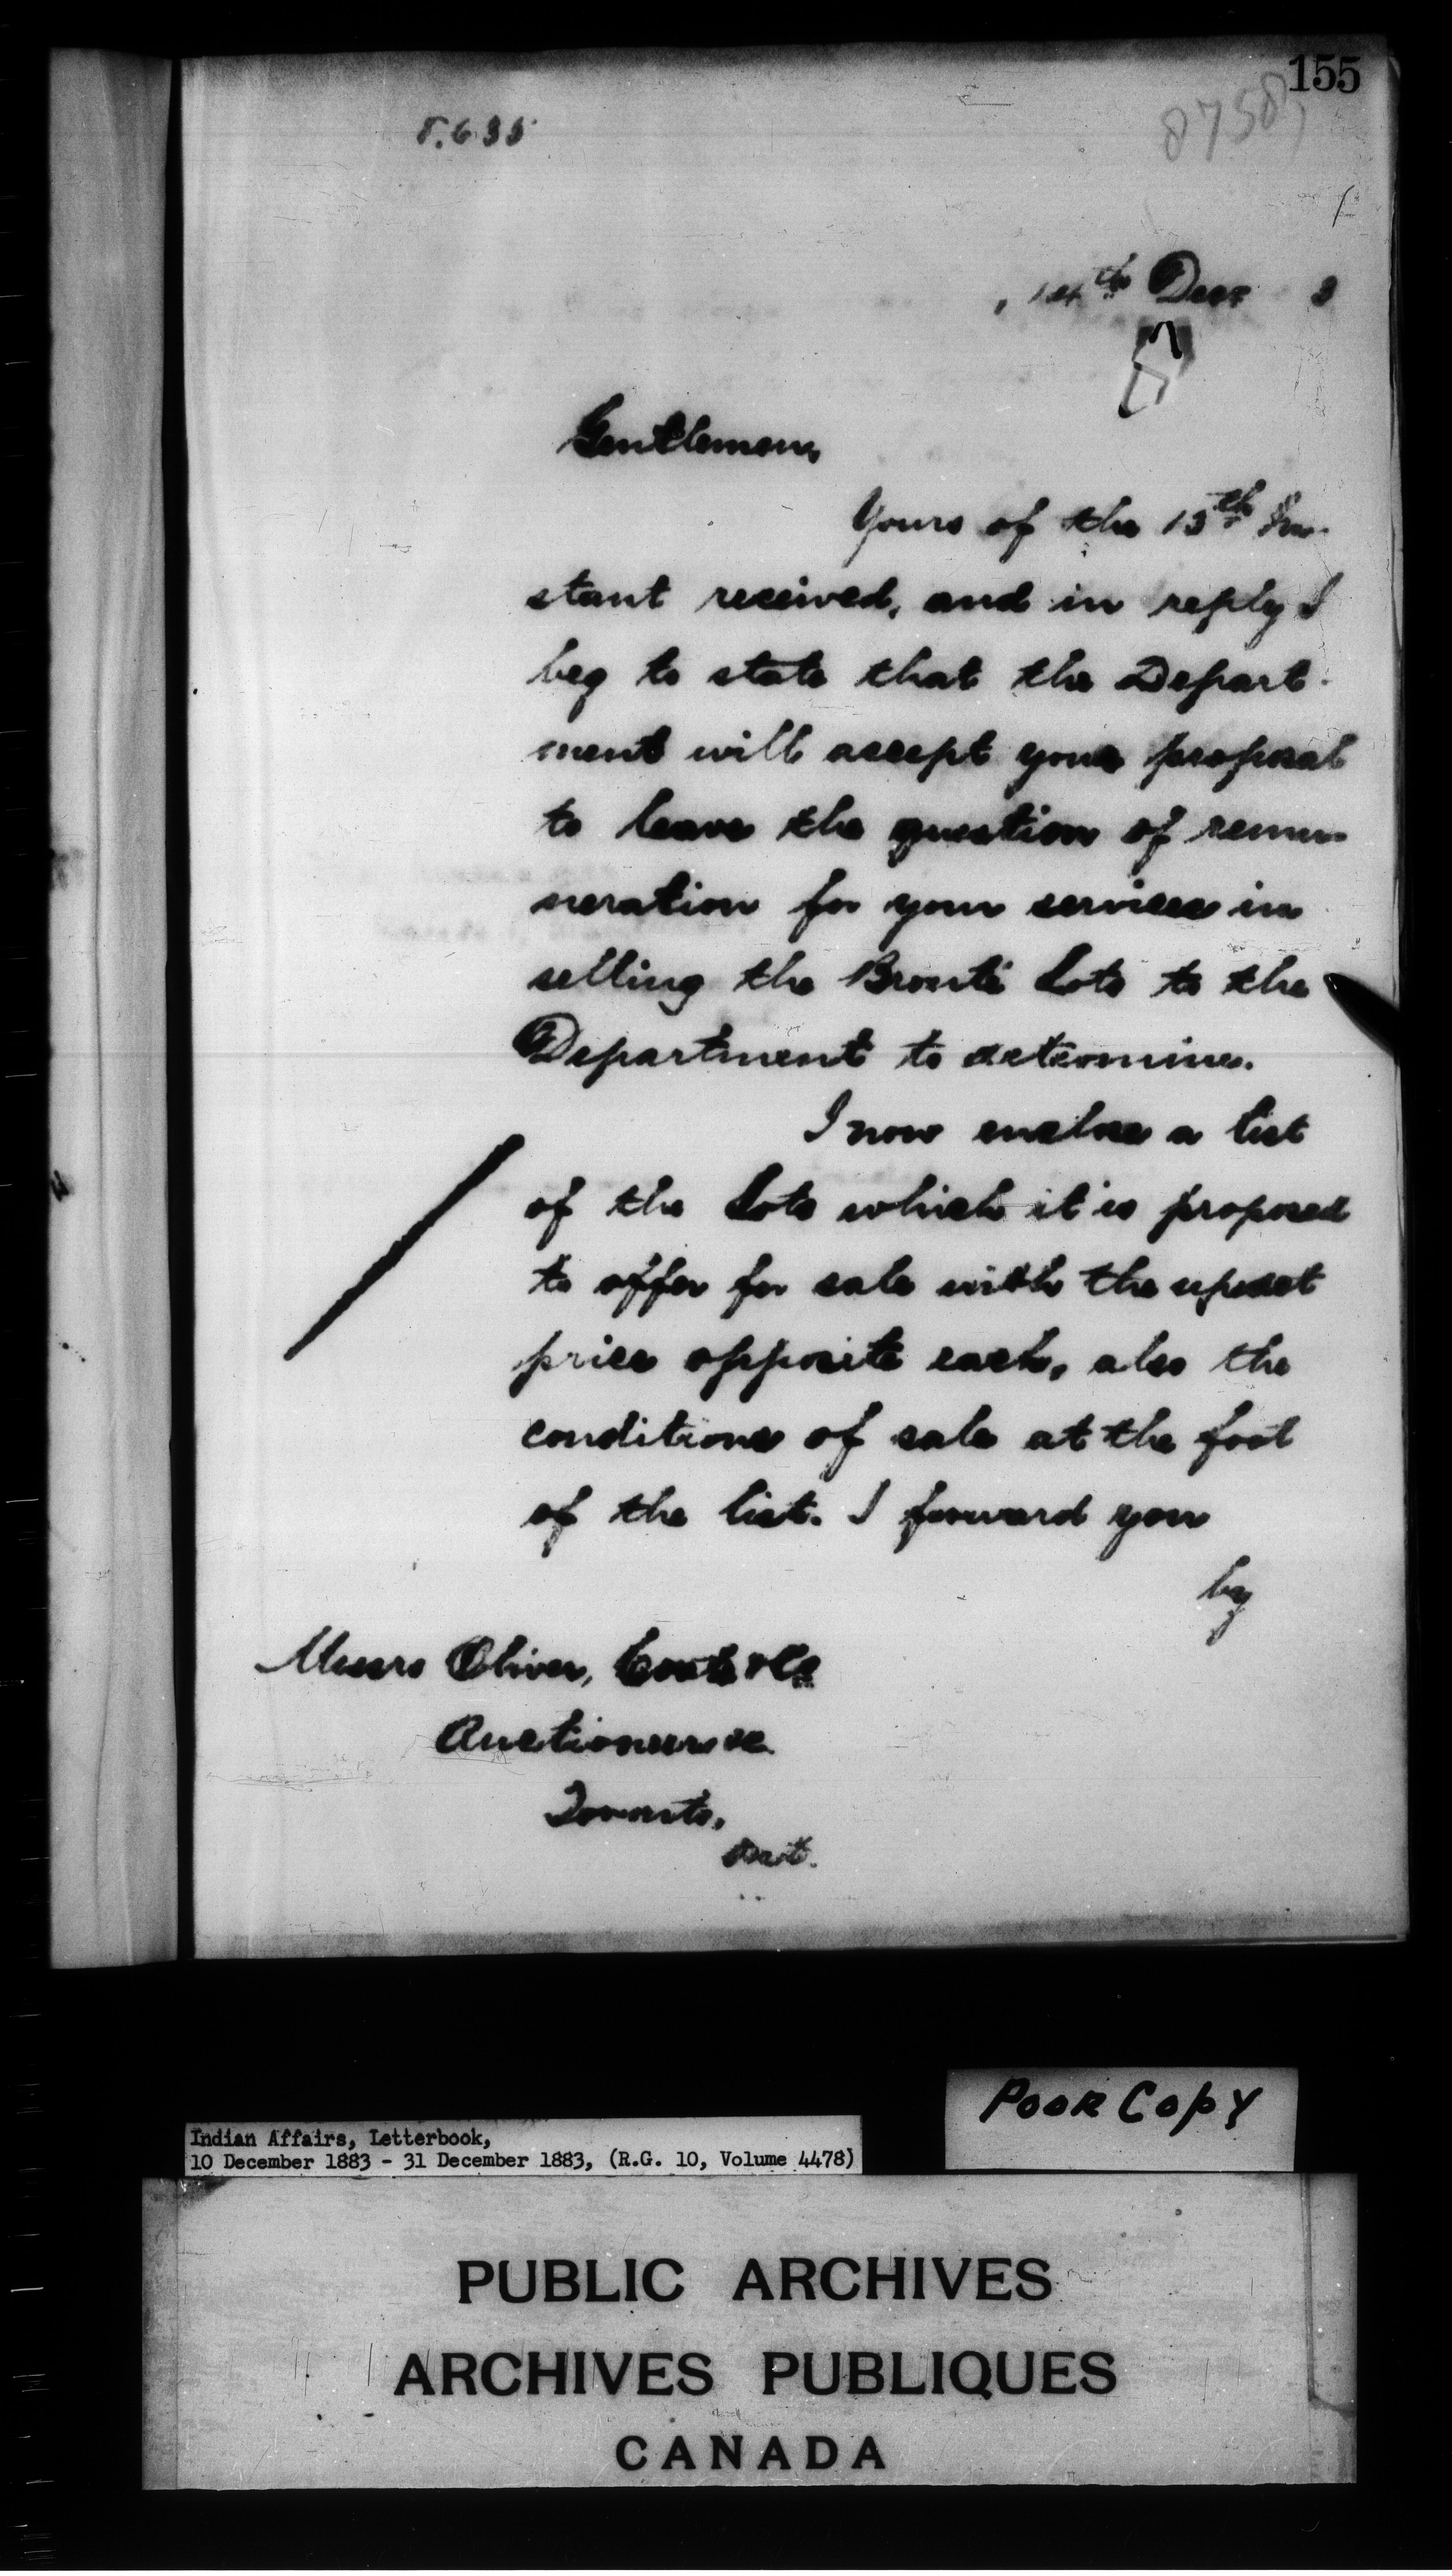 155
8758
14th Decr 3
Gentlemen,
Yours of the 13th In-
stant received, and in reply I
beg to state that the Depart-
ment will accept your proposal
to leave the question of remu-
neration for your services in
selling the Bronte Lots to the
Department to determine.
I now enclose a list
of the Lots which it is proposed
to offer for sale with the upset
price opposite each, also the
conditions of sale at the foot
of the list. I forward you
by
Messrs Oliver, Coate & Co
Auctioneers &c
Toronto,
Ont.
Poor Copy
Indian Affairs, Letterbook,
10 December 1883 - 31 December 1883, (R.G. 10, Volume 4478)
PUBLIC ARCHIVES
ARCHIVES PUBLIQUES
CANADA